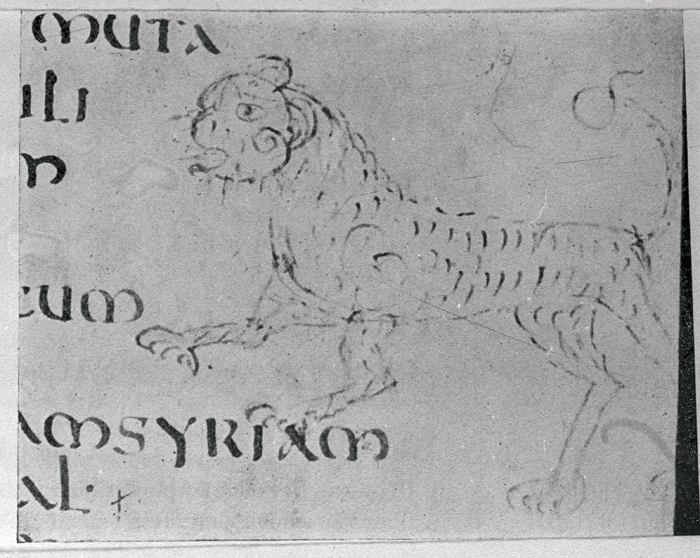 MUTA
ILI
M
CUM
AMSYRIAM
AL· +